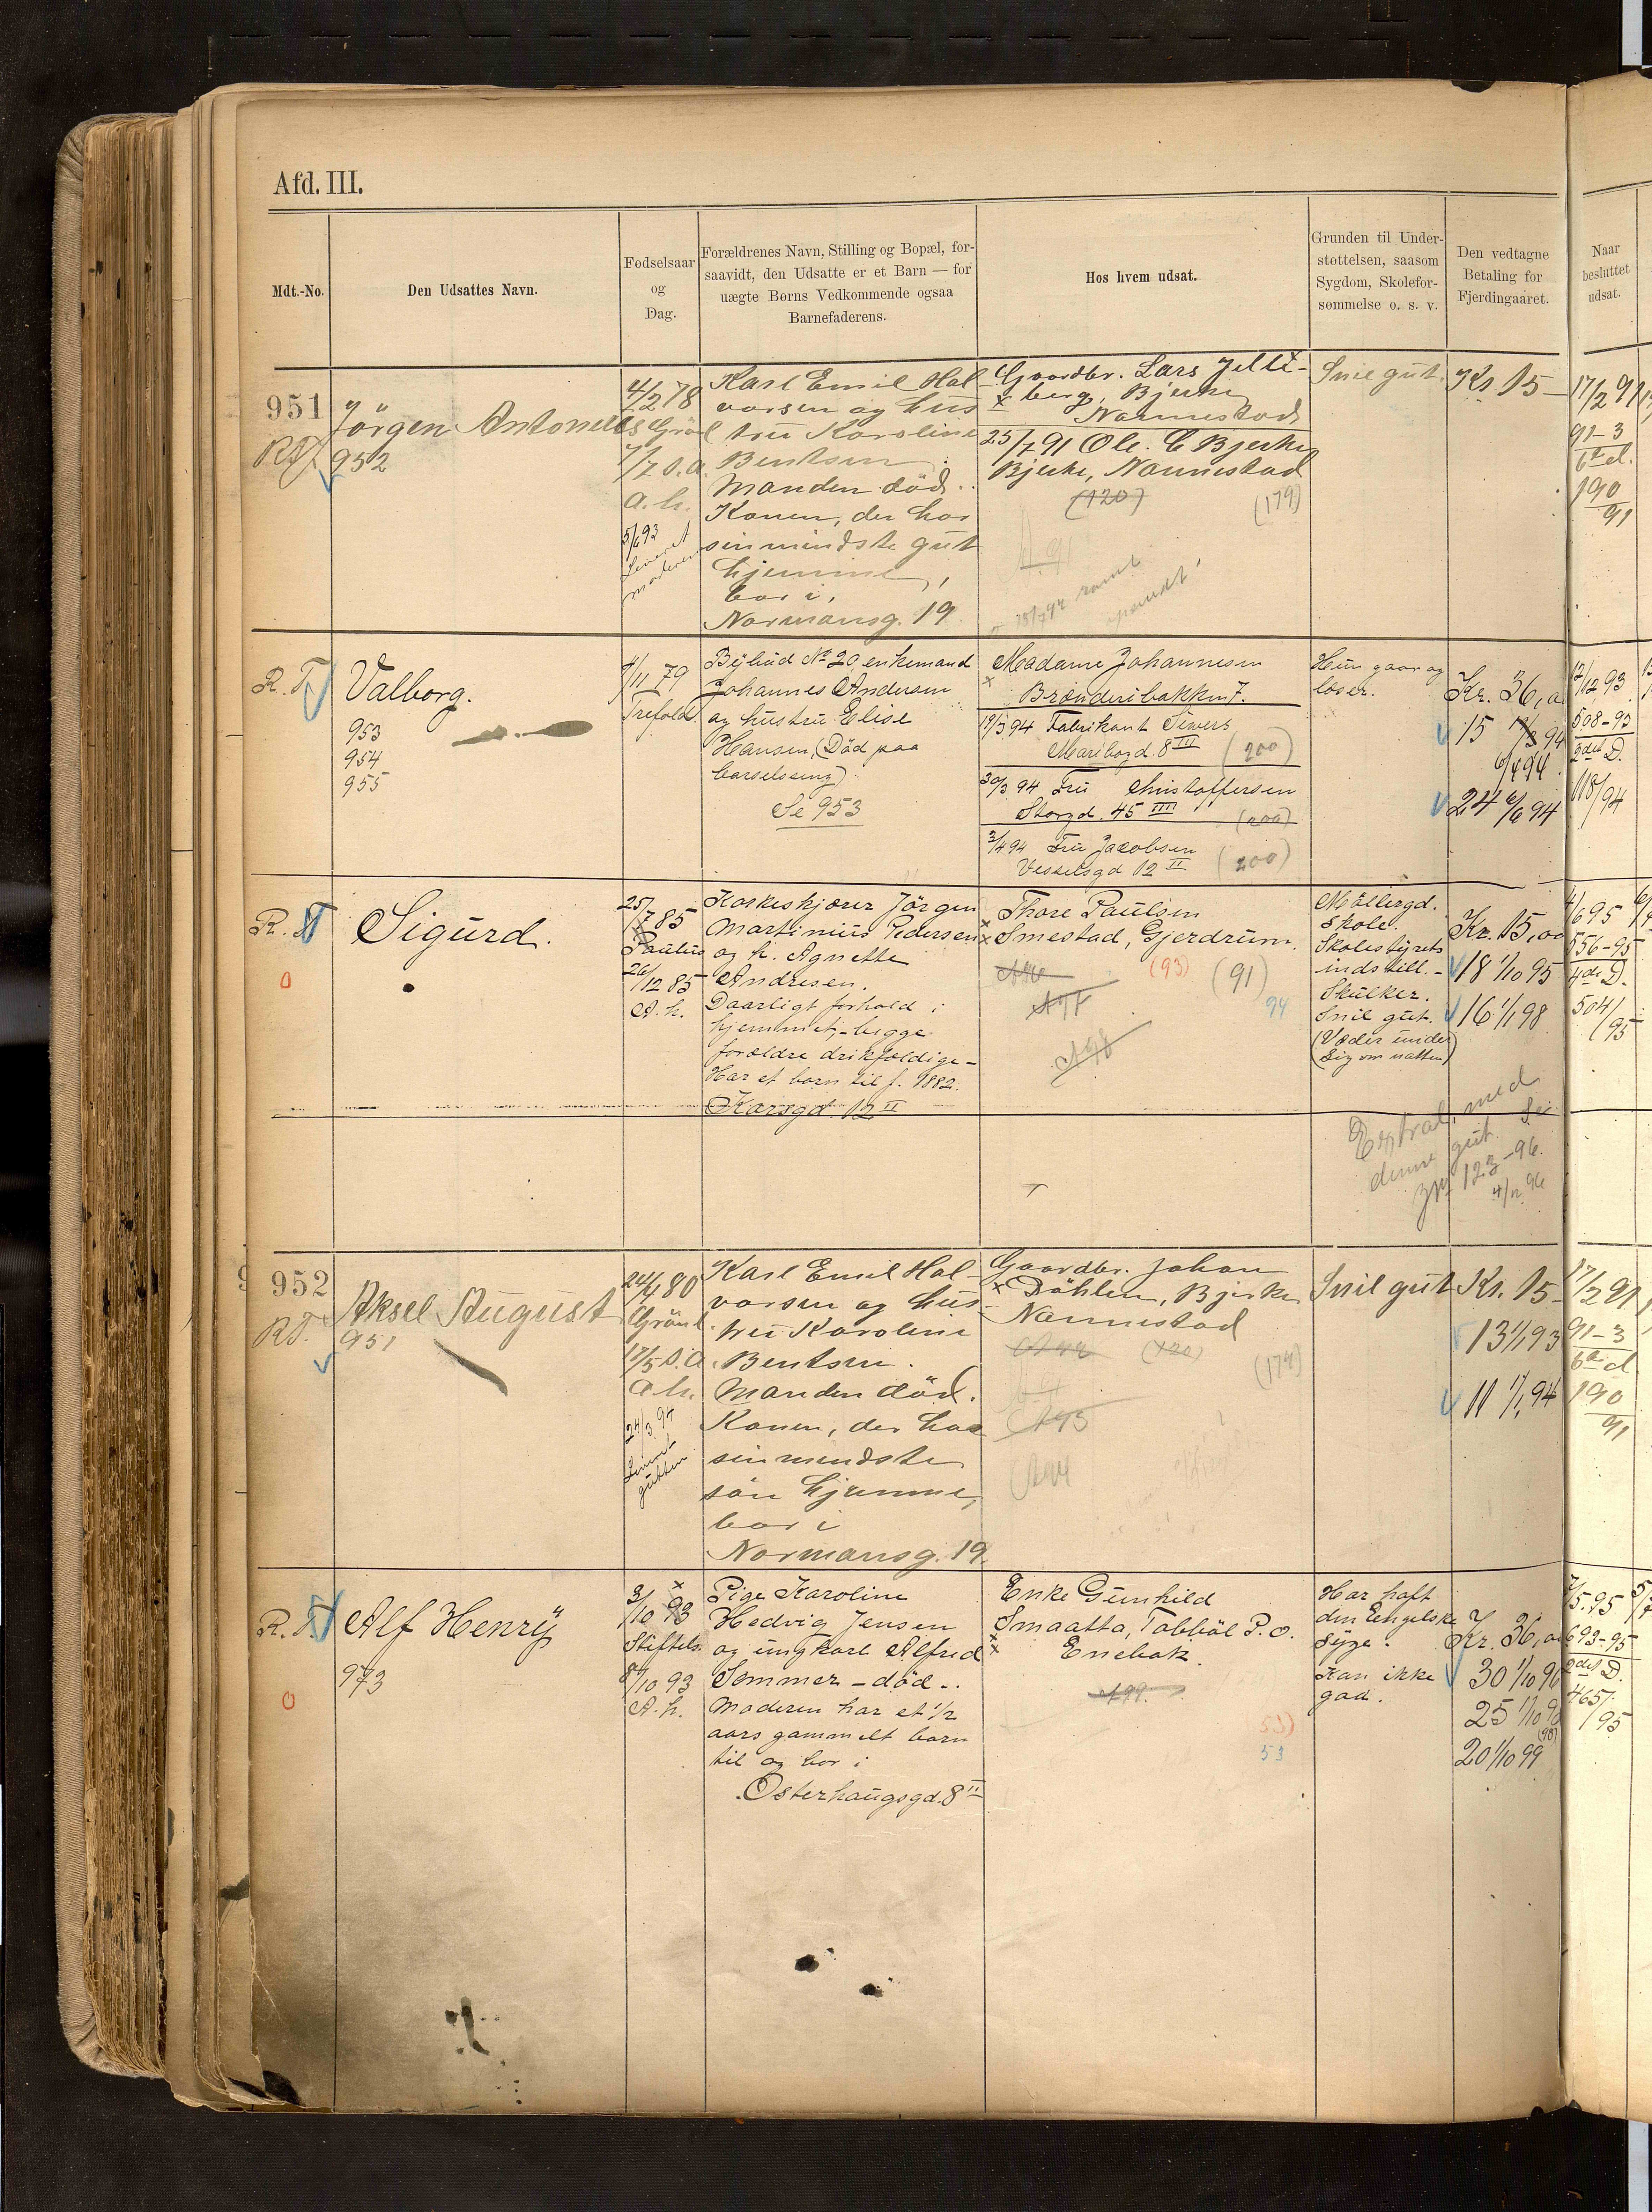 Afd. III.
Mdt.-No.
Den Udsattes Navn.
Fødselsaar
og
Dag.
Forældrenes Navn, Stilling og Bopæl, for-
saavidt, den Udsatte er et Barn — for
uægte Børns Vedkommende ogsaa
Barnefaderens.
Hos hvem udsat.
Grunden til Under-
støttelsen, saasom
Sygdom, Skolefor-
sømmelse o. s. v.
Den vedtagne
Betaling for
Fjerdingaaret.
Naar
besluttet
udsat.
951
R.T.
Jörgen Antonius
952
4/2 78
Grönl
7/7 s.a.
a.h.
5/6 93
Karl Emil Hal-
vorsen og hus
tru Karoline
Bentsen.
Manden död.
Konen, der har
sin mindste gut
hjemme,
bor i,
Normansg. 19
Gaardbr. Lars
berg, Bjerke
Nannestad
25/7 91 Ole. C Bjerke
Bjerke, Nannestad
(120)
(179)
Snil gut.
Kr. 15 –
17/2 91
91–3
6te d.
190
91
R.T.
Valborg.
953
954
955
4/11 79
Trefold
Bybud No 20 enkemand
Johannes Andersen
og hustru Elise
Hansen, (Död paa
barselseng)
Se 953
Madame Johannesen
Brænderibakken 7.
19/3 94 Fabrikant Siwers
Maribogd. 8 III
(200)
30/3 94 Fru Christoffersen
Storgd. 45 IIII
(200)
3/4 94 Fru Jacobsen
Vesselsgd 12 II
(200)
Hun gaar og
læser.
Kr. 36,00
15
6/4 94
24 6/6 94
12/12 93
508–93
2det D.
118/94
R.T.
Sigurd.
25/
7 85
Paulus
26/12 85
A.h.
Kaskeskjörer Jörgen
Martinius Pedersen
og h. Agnette
Andresen.
Daarligt forhold i
hjemmet, – begge
forældre drikfældige –
Har et barn til f. 1882.
Karsgd. 12 II
Thore Paulsen
Smestad, Gjerdrum.
(93)
(91)
94
Möllergd.
skole.
Skolestyrets
indstill. –
Skulker.
Snil gut.
(Væder under
sig om natten)
Kr. 15,00
18 1/10 95
16 1/1 98
4/6 95
556–95
4de D.
504/
95
med
denne gut. Se
123–96.
4/12 96
952
R.T.
Aksel August
951
24/4 80
Grönl.
17/5 s.a.
a.h.
24/3 94
gutten
Karl Emil Hal-
vorsen og hus-
tru Karoline
Bentsen.
Manden död.
Konen, der har
sin mindste
sön hjemme,
bor i
Normansg. 19.
Gaardbr. Johan
Döhlen, Bjerke
Nannestad
(120)
(179)
Snil gut
Kr. 15 –
13 1/1 93
11 1/1 94
17/2 91
91–3
6te d
190
91
R.T.
Alf Henry
973
3/10 93
Stiftels.
8/10 93
A.h.
Pige Karoline
Hedvig Jensen
og ungkarl Alfred
Sommer – död –.
Moderen har et 1/2
aars gammelt barn
til og bor i
Osterhaugsgd. 8 II
Enke Gunhild
Smaatta, Tobböl P.o.
Enebak.
53)
53
Har haft
den Engelske
syge.
Kan ikke
gaa.
Kr. 36,00
30 1/10 96
25 1/10
(98)
20 1/10 99
7/5 95
693–95
2det D.
465/
95